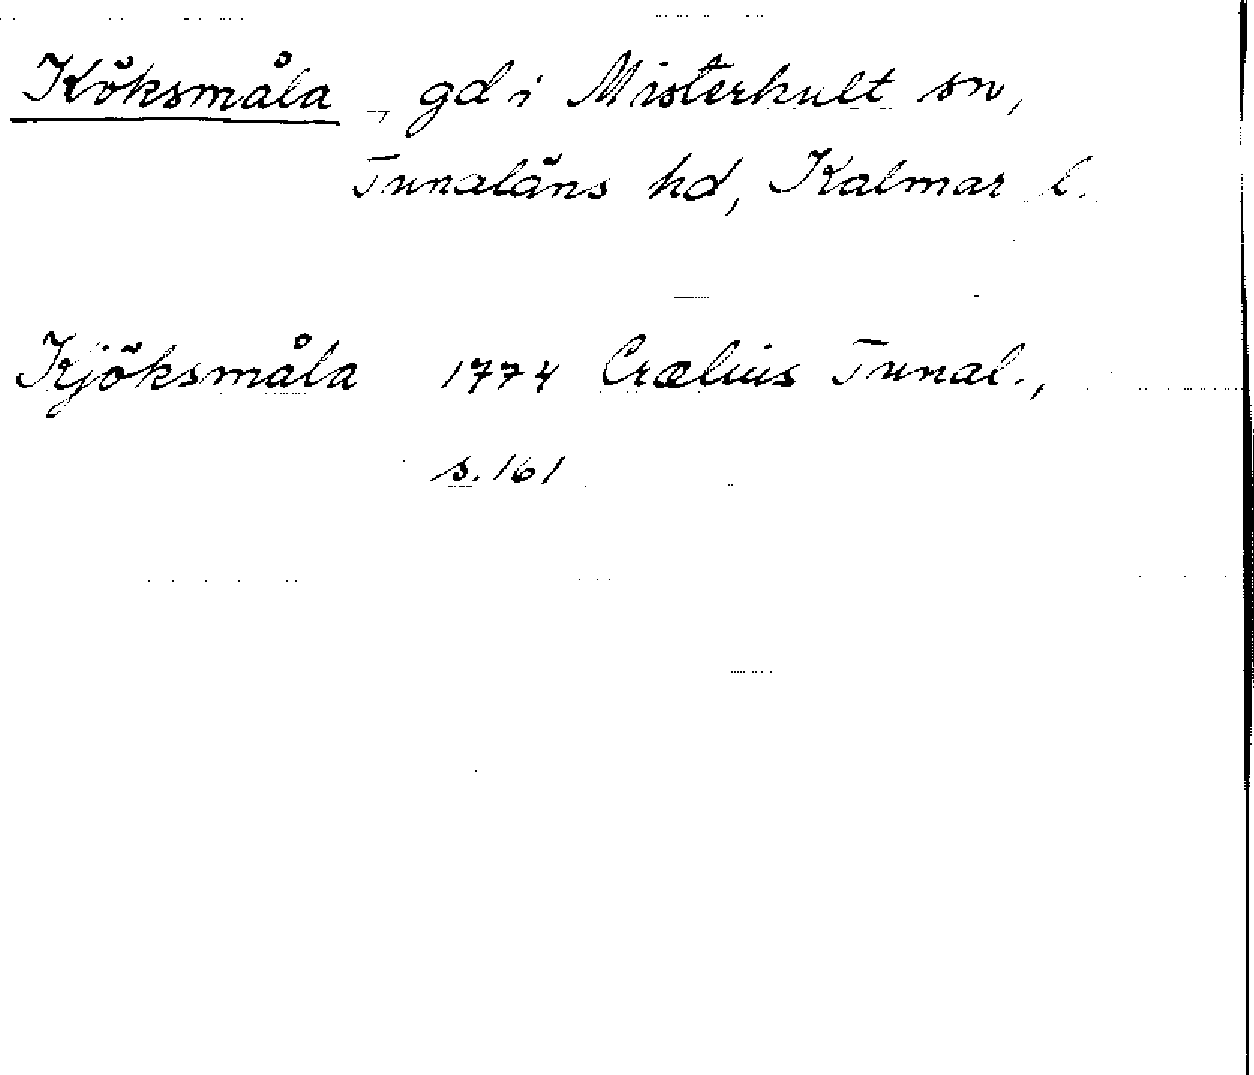 Köksmåla, gd i Misterhult sn,
Tunaläns hd, Kalmar l.
Kjöksmåla 1774 Crælius Tunal.,
s. 161